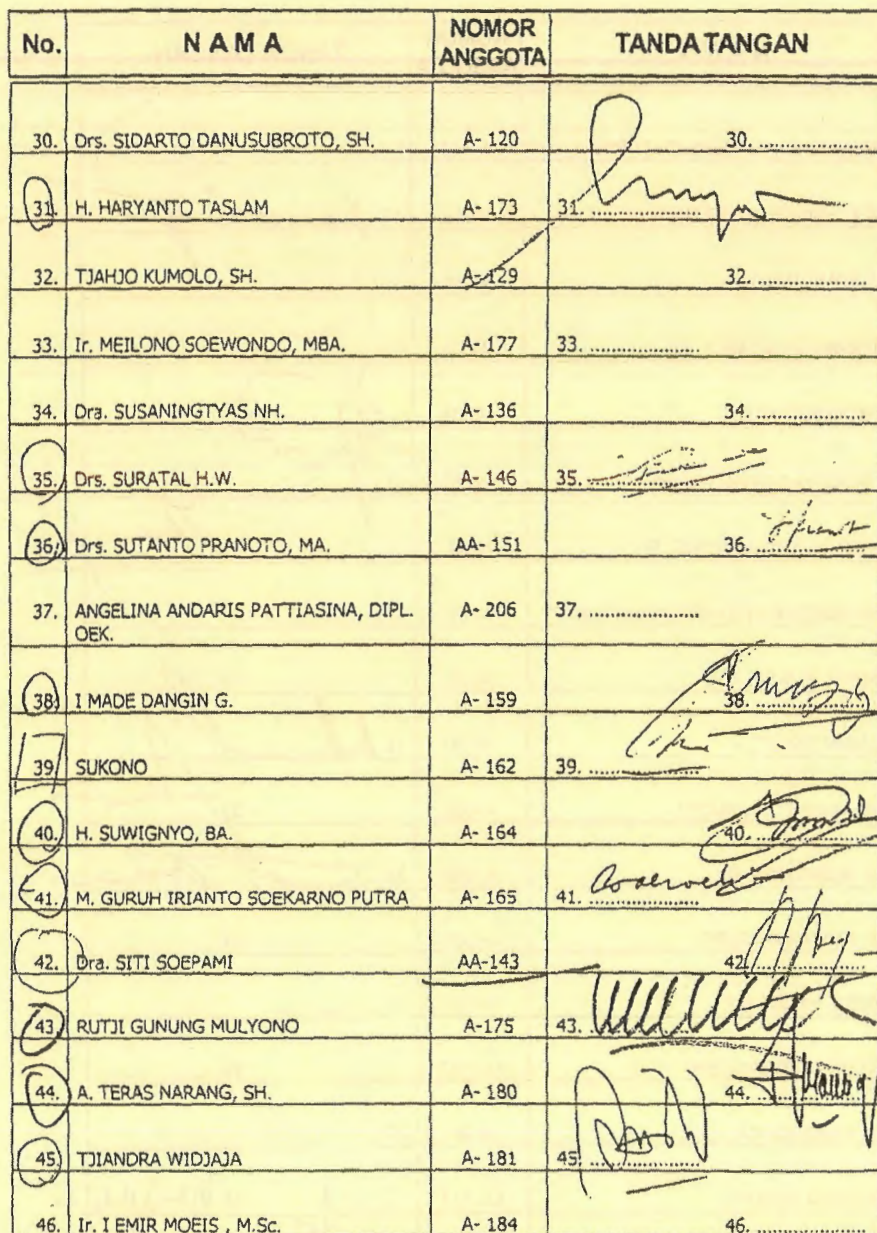 No. N A M A NOMOR ANGGOTA TANDA TANGAN
30. Drs. SIDARTO DANUSUBROTO, SH. A- 120 30. ....................
31. H. HARYANTO TASLAM A- 173 31. ....................
32. TJAHJO KUMOLO, SH. A- 129 32. ....................
33. Ir. MEILONO SOEWONDO, MBA. A- 177 33. ....................
34. Dra. SUSANINGTYAS NH. A- 136 34. ....................
35. Drs. SURATAL H.W. A- 146 35. ....................
36. Drs. SUTANTO PRANOTO, MA. AA- 151 36. ....................
37. ANGELINA ANDARIS PATTIASINA, DIPL. A- 206 37. ....................
OEK.
38. I MADE DANGIN G. A- 159 38. ....................
39. SUKONO A- 162 39. ....................
40. H. SUWIGNYO, BA. A- 164 40. ....................
41. M. GURUH IRIANTO SOEKARNO PUTRA A- 165 41. ....................
42. Dra. SITI SOEPAMI AA-143 42. ....................
43. RUTJI GUNUNG MULYONO A-175 43. ....................
44. A. TERAS NARANG, SH. A- 180 44. ....................
45. TJIANDRA WIDJAJA A- 181 45. ....................
46. Ir. I EMIR MOEIS , M.Sc. A- 184 46. ....................